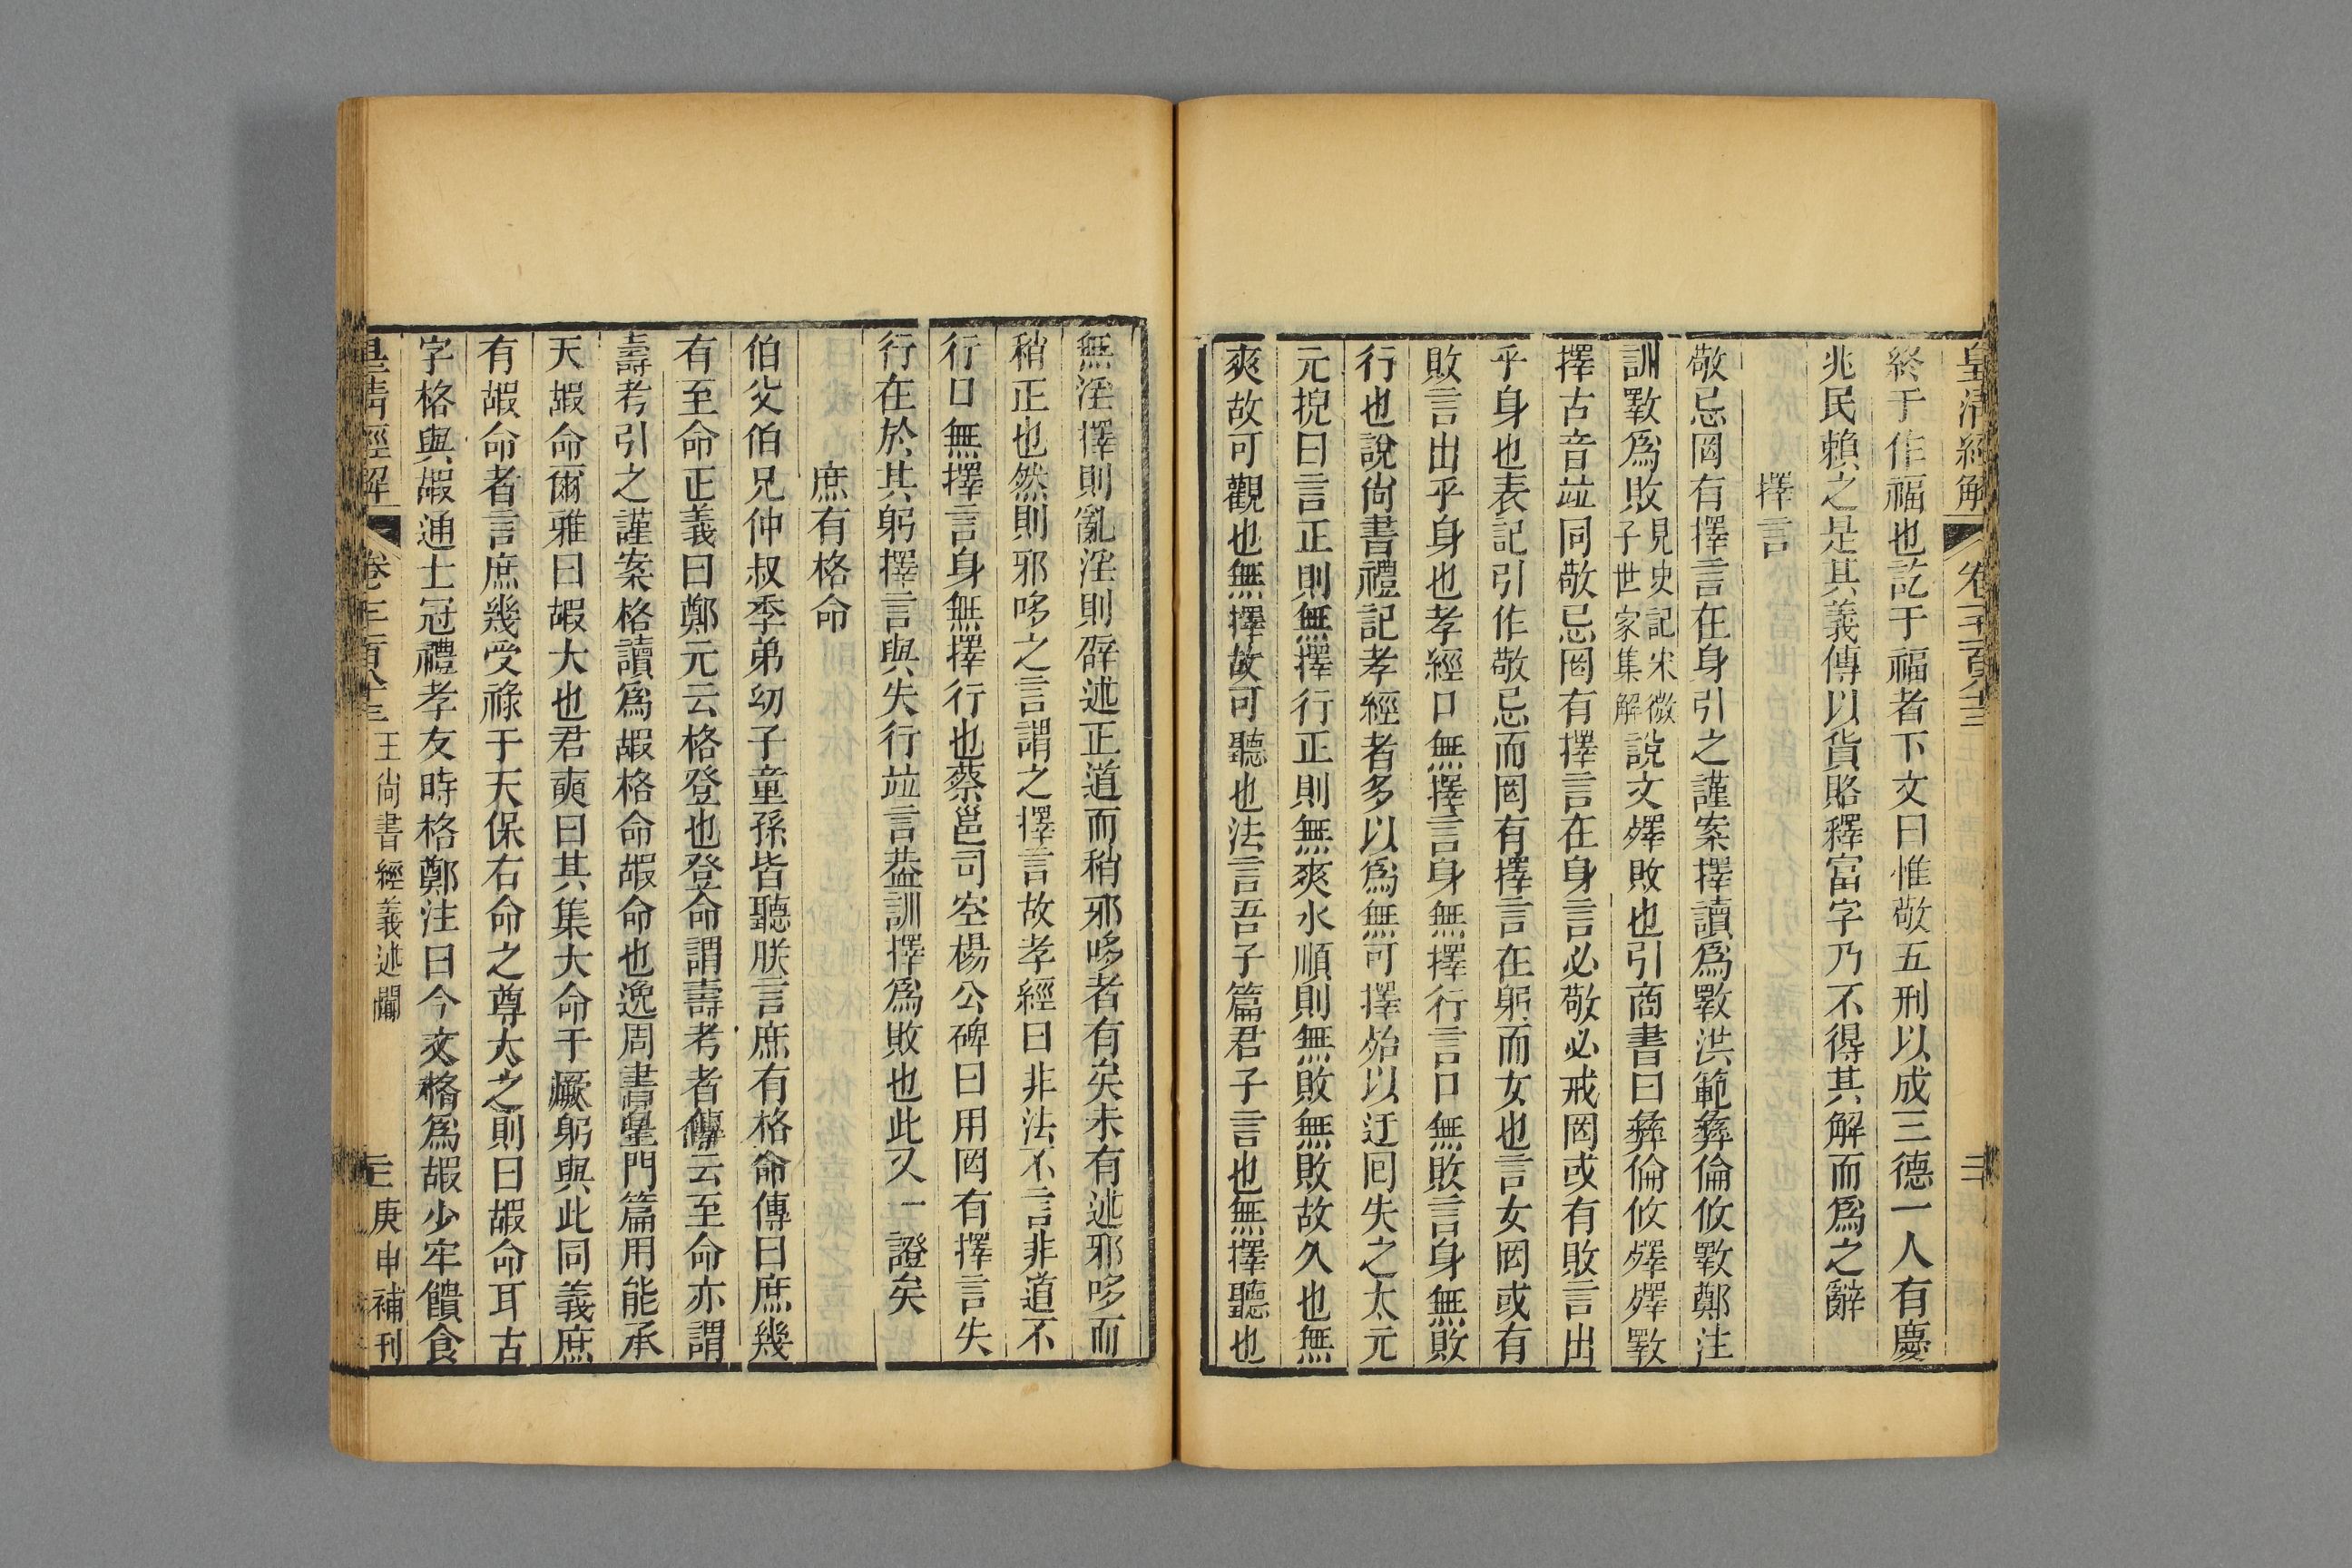 皇清經解 卷千一百八十三 二
終于作福也訖于福者下文曰惟敬五刑以成三德一人有慶
兆民賴之是其義傳以貨賂釋富字乃不得其解而爲之辭
擇言
敬忌罔有擇言在身引之謹案擇讀爲斁洪範彝倫攸斁鄭注
訓斁爲敗見史記宋微子世家集解說文殬敗也引商書曰彝倫攸殬殬斁
擇古音竝同敬忌罔有擇言在身言必敬必戒罔或有敗言出
乎身也表記引作敬忌而罔有擇言在躬而女也言女罔或有
敗言出乎身也孝經口無擇言身無擇行言口無敗言身無敗
行也說尙書禮記孝經者多以爲無可擇殆以迂囘失之太元
元掜曰言正則無擇行正則無爽水順則無敗無敗故久也無
爽故可觀也無擇故可聽也法言吾子篇君子言也無擇聽也
無淫擇則亂淫則辟述正道而稍邪哆者有矣未有述邪哆而
稍正也然則邪哆之言謂之擇言故孝經曰非法不言非道不
行口無擇言身無擇行也蔡邕司空楊公碑曰用罔有擇言失
行在於其躬擇言與失行竝言葢訓擇爲敗也此又一證矣
庶有格命
伯父伯兄仲叔季弟幼子童孫皆聽朕言庶有格命傳曰庶幾
有至命正義曰鄭元云格登也登命謂壽考者傳云至命亦謂
壽考引之謹案格讀爲嘏格命嘏命也逸周書皇門篇用能承
天嘏命爾雅曰嘏大也君奭曰其集大命于厥躬與此同義庶
有嘏命者言庶幾受祿于天保右命之尊大之則曰嘏命耳古
字格與嘏通士冠禮孝友時格鄭注曰今文格爲嘏少牢饋食
皇清經解 卷千一百八十三 王尙書經義述聞 三 庚申補刊